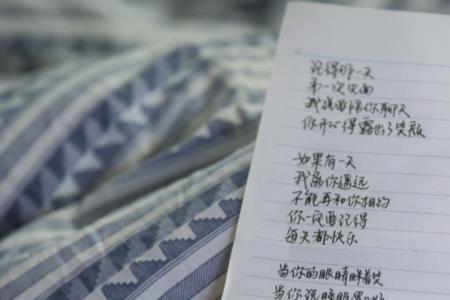 记得那一天
第一次见面
我说要陪你聊天
你开心得露出了笑颜
如果有一天
我离你遥远
不能再和你相约
你一定要记得
每天都快乐
当你的眼睛眯着笑
当你说睡